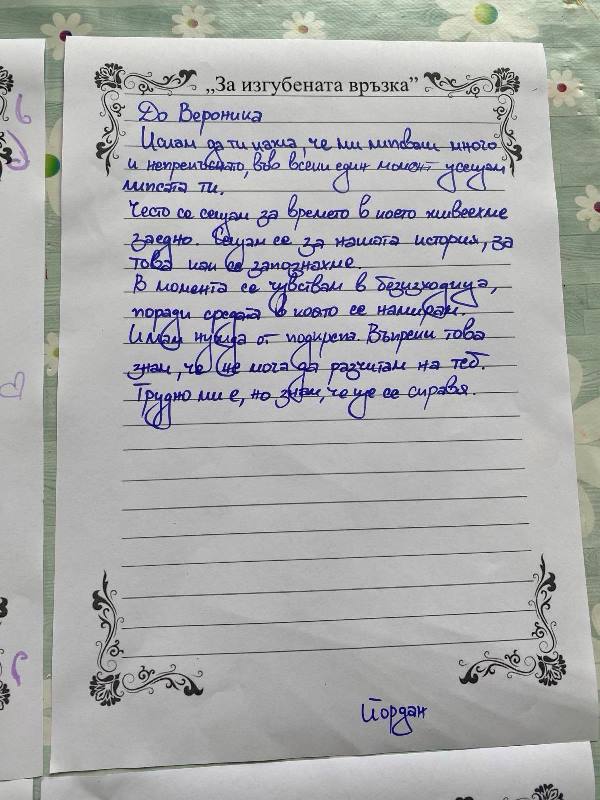 „За изгубената връзка”
До Вероника
Искам да ти кажа, че ми липсваш много
и непрекъснато, във всеки един момент усещам
липсата ти.
Често се сещам за времето в което живеехме
заедно. Сещам се за нашата история, за
това как се запознахме.
В момента се чувствам в безизходица,
поради средата в която се намирам.
Имам нужда от подкрепа. Въпреки това
знам, че не мога да разчитам на теб.
Трудно ми е, но знам, че ще се справя.
Йордан